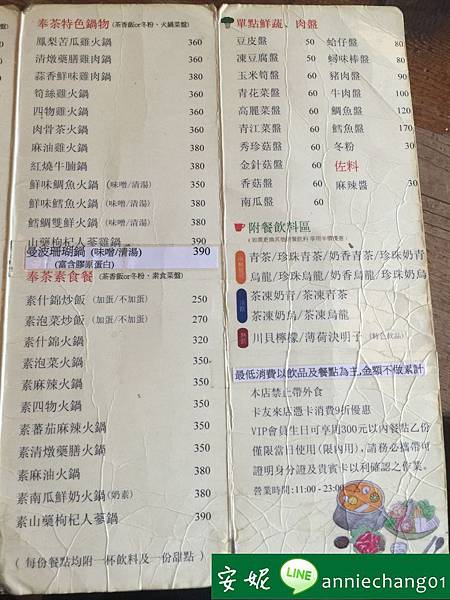 奉茶特色鍋物 (茶香飯or冬粉、火鍋菜盤)
鳳梨苦瓜雞火鍋 360
清燉藥膳雞肉鍋 360
蒜香鮮味雞肉鍋 380
筍絲雞火鍋 360
四物雞火鍋 360
肉骨茶火鍋 360
麻油雞火鍋 380
紅燒牛腩鍋 380
鮮味鯛魚火鍋 (味噌/清湯) 350
鮮味鱈魚火鍋 (味噌/清湯) 380
鱈鯛雙鮮火鍋 (味噌/清湯) 380
山藥枸杞人蔘雞鍋
曼波珊瑚鍋 (味噌/清湯) 390
(富含膠原蛋白)
奉茶素食餐 (茶香飯or冬粉、素食菜盤)
素什錦炒飯 (加蛋/不加蛋) 250
素泡菜炒飯 (加蛋/不加蛋) 270
素什錦火鍋 320
素泡菜火鍋 350
素麻辣火鍋 350
素四物火鍋 350
素蕃茄麻辣火鍋 350
素清燉藥膳火鍋 350
素麻油火鍋 380
素南瓜鮮奶火鍋(奶素) 380
素山藥枸杞人蔘鍋 390
( 每份餐點均附一杯飲料及一份甜點 )
單點鮮蔬、肉盤
豆皮盤 50
凍豆腐盤 50
玉米筍盤 60
青花菜盤 60
高麗菜盤 60
青江菜盤 60
秀珍菇盤 60
金針菇盤 60
香菇盤 60
南瓜盤 60
蛤仔盤 80
蟳味棒盤 80
豬肉盤 90
牛肉盤 100
鯛魚盤 120
鱈魚盤 170
冬粉 30
佐料
麻辣醬 30
附餐飲料區
青茶/珍珠青茶/奶香青茶/珍珠奶青
烏龍/珍珠烏龍/奶香烏龍/珍珠奶烏
茶凍奶青/茶凍青茶
茶凍奶烏/茶凍烏龍
川貝檸檬/薄荷決明子 (特色飲品)
最低消費以飲品及餐點為主,金額不做累計
本店禁止帶外食
卡友來店憑卡消費9折優惠
VIP會員生日可享用300元以內餐點乙份
僅限當日使用(限內用)，請務必攜帶可
證明身分證及貴賓卡以利確認之作業。
營業時間:11:00-23:00
安妮 LINE anniechang01